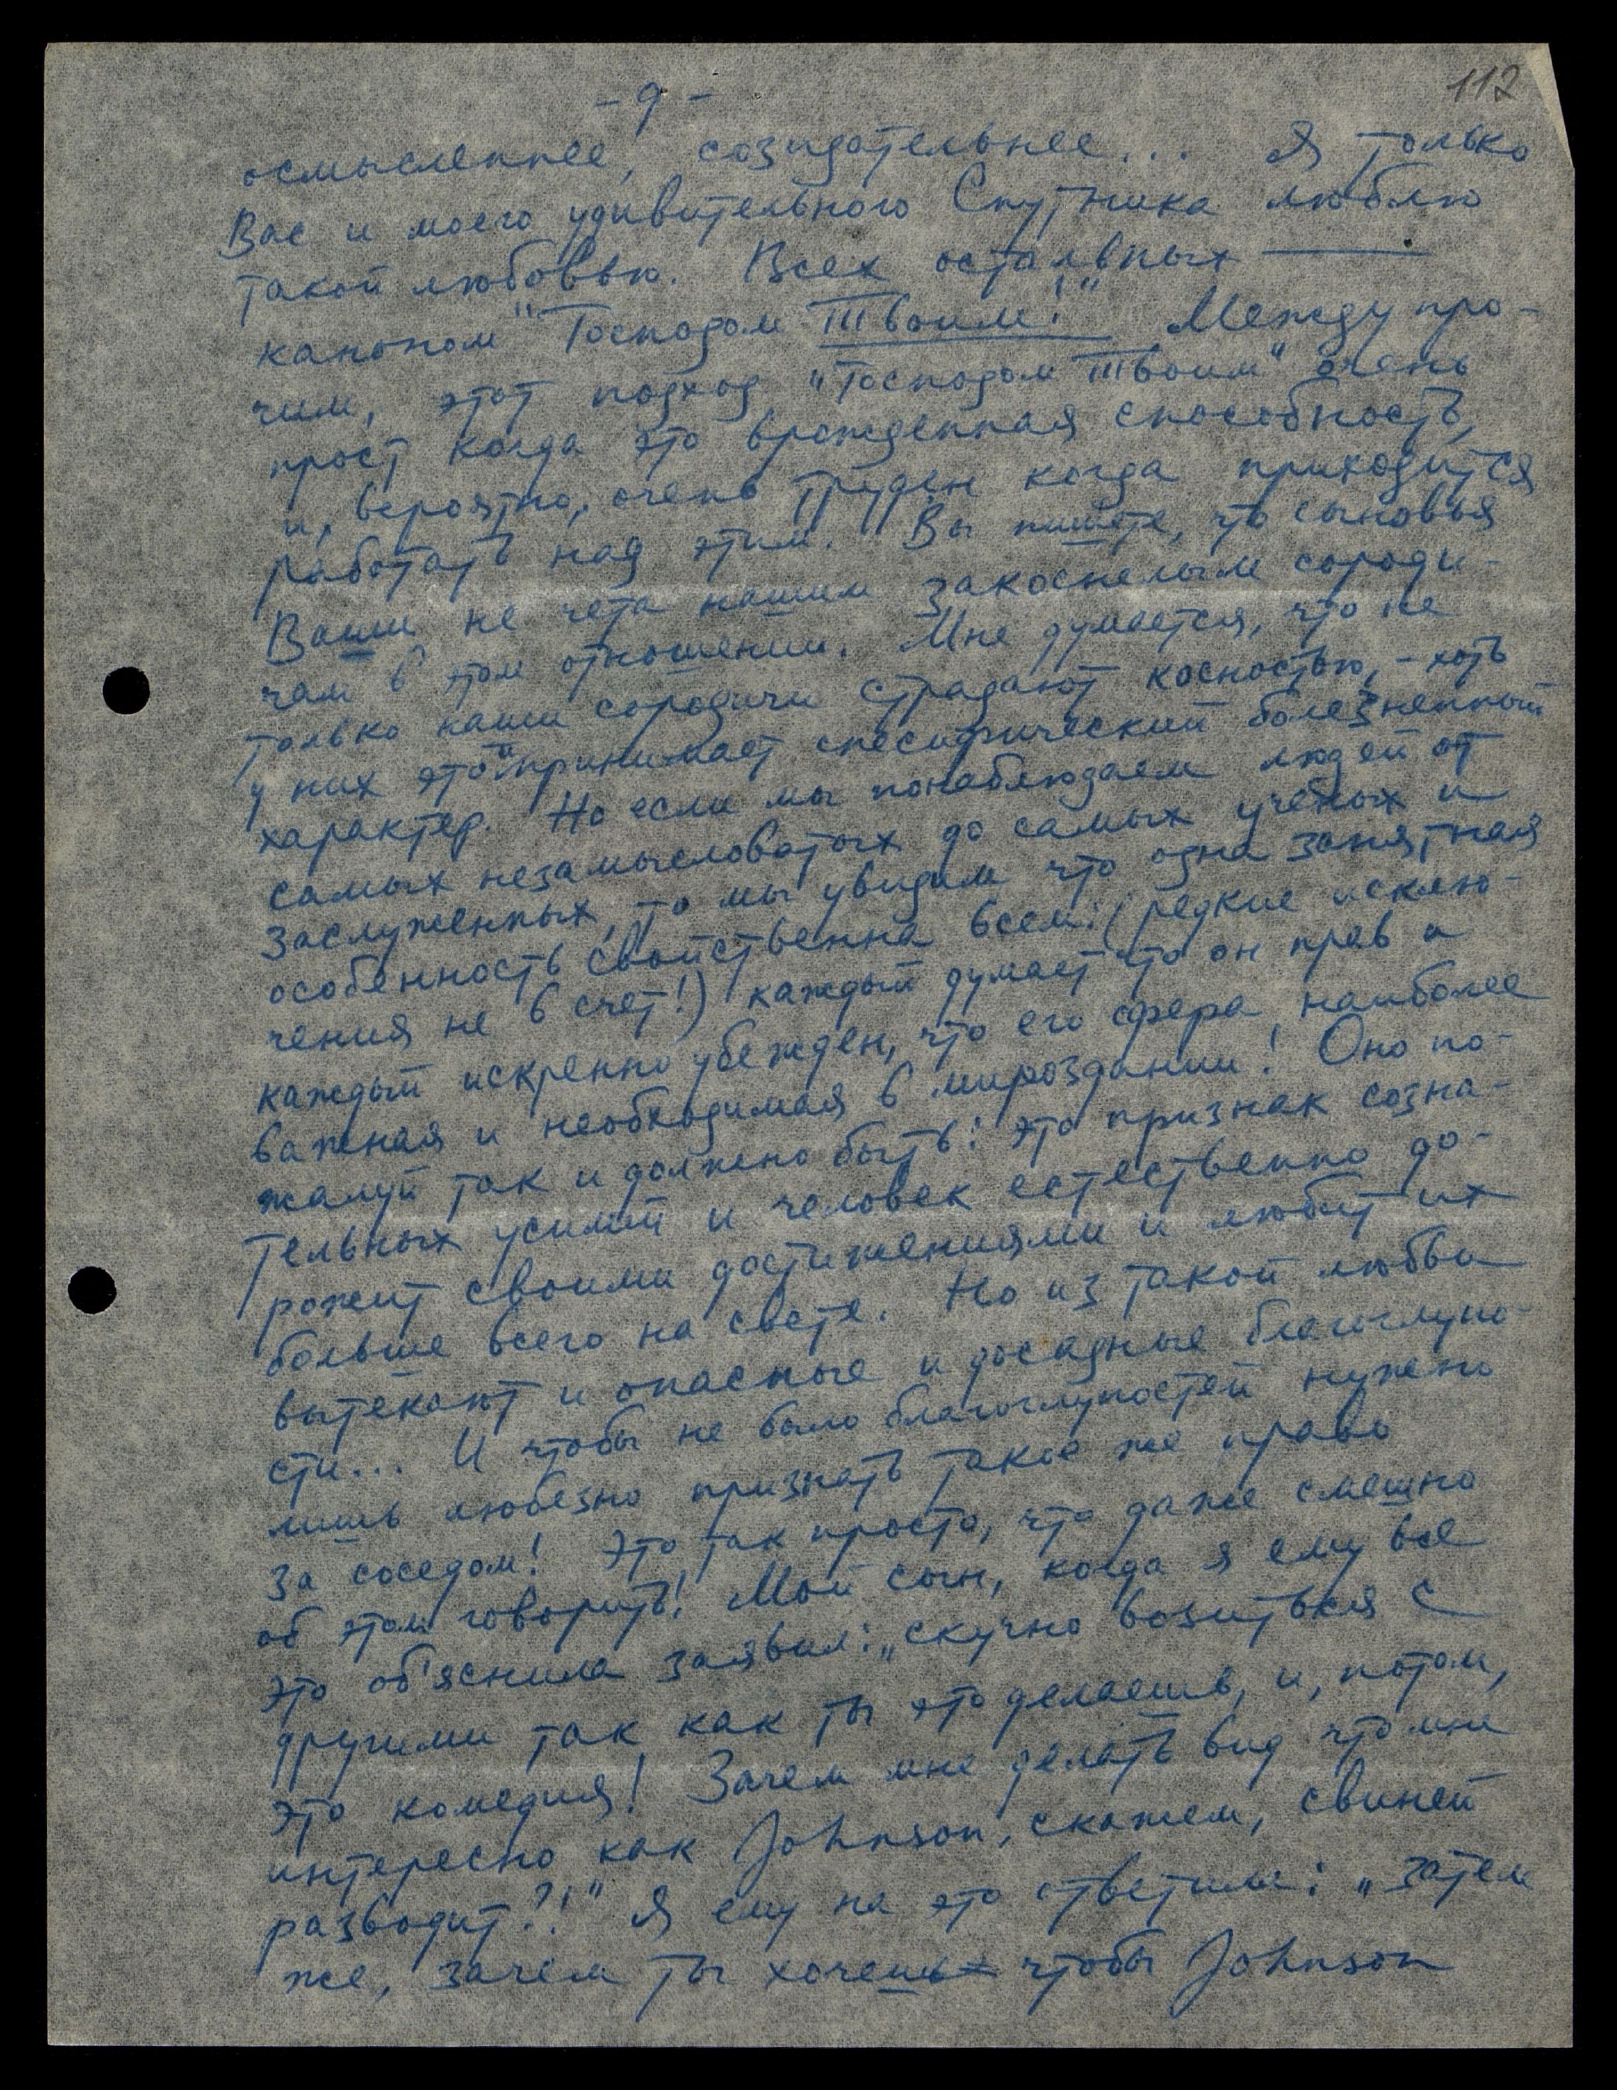 112
- 9 -
осмысленнее, созидательнее... Я только
Вас и моего удивительного Спутника люблю
такой любовью. Всех остальных ———
каноном "Господом Твоим!" Между про-
чим, этот подход "Господом Твоим" очень
прост когда это врожденная способность,
и, вероятно, очень труден когда приходится
работать над этим. Вы пишете, что сыновья
Ваши не чета нашим закоснелым сороди-
чам в этом отношении. Мне думается, что не
только наши сородичи страдают косностью, - хоть
у них это и принимает спесифический болезненный
характер. Но если мы понаблюдаем людей от
самых незамысловатых до самых ученых и
заслуженных, то мы увидим что одна занятная
особенность свойственна всем: (редкие исклю-
чения не в счет!) каждый думает что он прав и
каждый искренно убежден, что его сфера наиболее
важная и необходимая в мироздании! Оно по-
жалуй так и должно быть: это признак созна-
тельных усилий и человек естественно до-
рожит своими достижениями и любит их
больше всего на свете. Но из такой любви
вытекают и опасные и досадные благоглупо-
сти... И чтобы не было благоглупостей нужно
лишь любезно признать такое же право
за соседом! Это так просто, что даже смешно
об этом говорить! Мой сын, когда я ему все
это об'яснила заявил: „скучно возиться с
другими так как ты это делаешь, и, потом,
это комедия! Зачем мне делать вид что мне
интересно как Johnson, скажем, свиней
разводит?!" Я ему на это ответила: „Затем
же, зачем ты хочешь чтобы Johnson